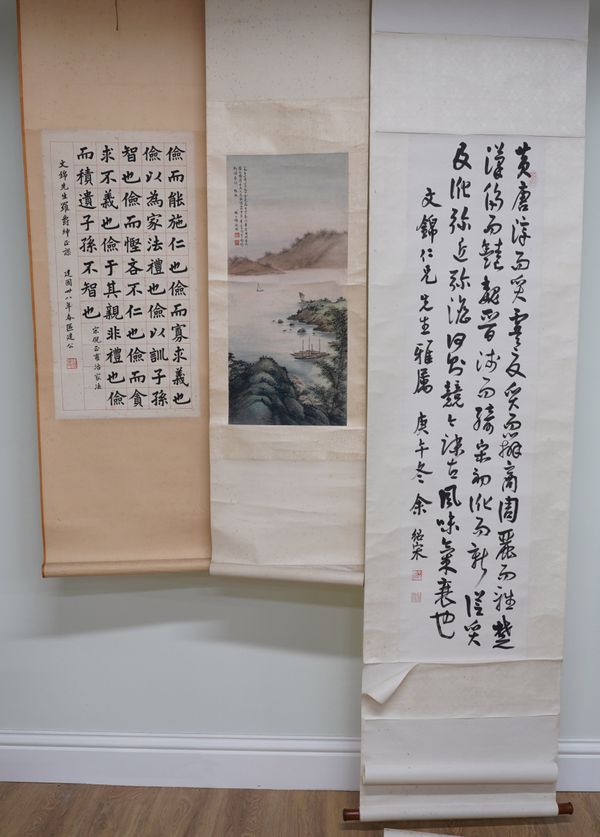 黄唐淳而質虞夏質而辨商周麗而雅楚
漢侈而豔魏晉淺而綺宋初訛而新從質
及訛弥近弥澹何則競今疎古風味氣衰也
文錦仁兄先生雅属 庚午冬 余紹宋
儉而能施仁也儉而寡求義也
儉以為家法禮也儉以訓子孫
智也儉而慳吝不仁也儉而貪
求不義也儉于其親非禮也儉
而積遺子孫不智也
宋倪正甫治家法
文錦先生 正謬 建國卅八年春區建公